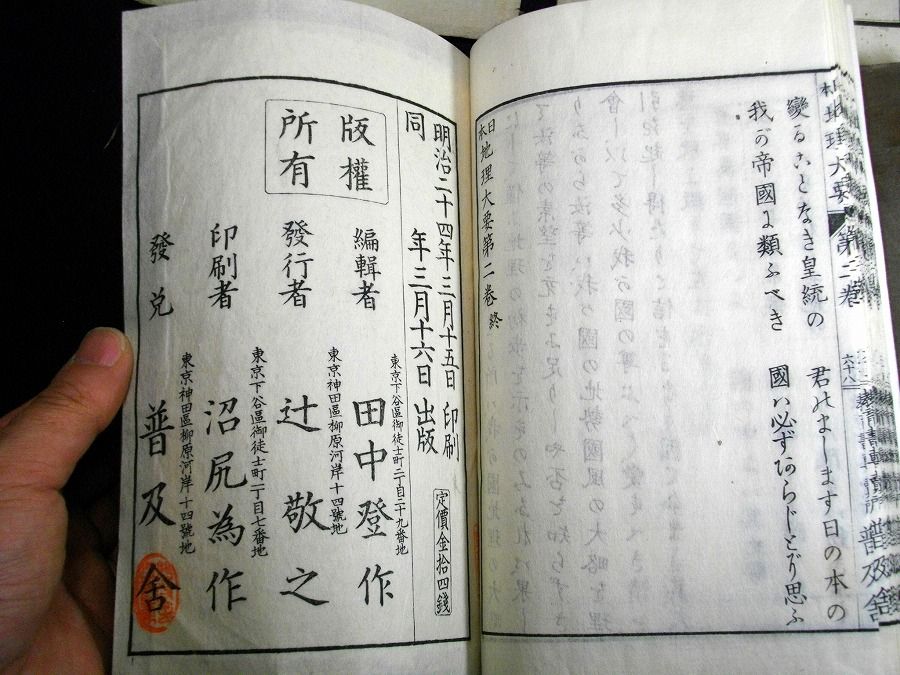 變ることなき皇統の　君のまします日の本の
我が帝國に類ふべき　國ハ必ずあらじとぞ思ふ
日本地理大要第二卷終
明治二十四年三月十五日印刷
同　年三月十六日出版
定價金拾四錢
版權所有
編輯者
東京下谷區御徒士町二丁目二十九番地
田中登作
發行者
東京神田區柳原河岸十四號地
辻敬之
印刷者
東京下谷區御徒士町二丁目七番地
沼尻為作
發兌
東京神田區柳原河岸十四號地
普及舍